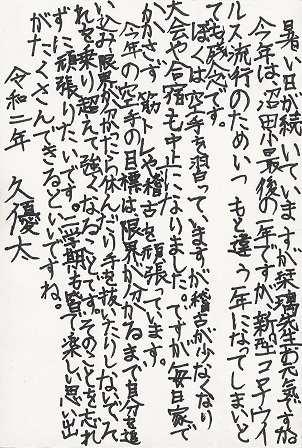 暑い日が続いていますが栞璃先生お元気ですか。
今年は、沼田小最後の一年ですが、新型コロナウイ
ルス流行のためいつもと違う一年になってしまいと
ても残念です。
ぼくは空手を習っていますが稽古が少なくなり
大会や合宿も中止になりました。ですが毎日家で
かかさず筋トレや稽古を頑張っています。
今年の空手の目標は限界が分かるまで自分を追
い込み限界が分かったら休んだり手を抜いたりしないでそ
れを乗り超えて強くなることです。そのことを忘れ
ずに頑張りたいです。二学期も皆で楽しい思い出
がたくさんできるといいですね。
令和二年 久優太